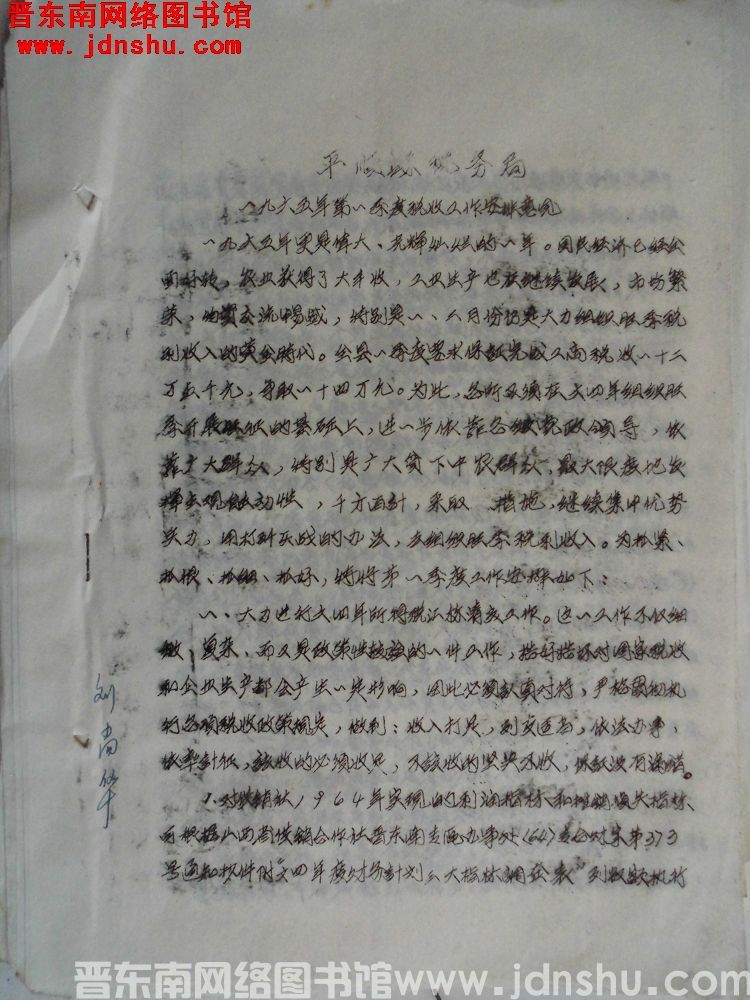 晋东南网络图书馆
www.jdnshu.com
平顺县税务局
一九六五年第一季度税收工作安排意见
一九六五年更是伟大、光辉灿烂的一年。国民经济已经全
面好转，农业获得了大丰收，工业生产也在继续发展，市场繁
荣，物资交流畅，特别是一、二月份仍是大力组织旺季税
利收入的黄金时代。全县一季度要求保证完成工商税收一十二
万五千元，争取一十四万元。为此，各所必须在六四年组织旺
季的基础上，进一步依靠各级党政领导，依
靠广大群众，特别是广大贫下中农群众，最大限度地发
挥主观能动性，千方百计，采取 措施，继续集中优势
兵力，用打歼灭战的办法，组织旺季税利收入。为抓紧、
抓狠、抓细、抓好，特将第一季度工作安排如下：
一、大力进行六四年所得税汇算清交工作。这一工作不仅细
致、复杂、而又是政策性较强的一件工作，搞好搞坏对国家税收
和企业生产都会产生一定影响，因此必须认真对待，严格贯彻执
行各项税收政策规定，做到：收入打足，列支适当，依法办事，
依率计征，该收的必须收足，不该收的坚决不收，
1.对供销社1964年实现的利润指标和损失指标，
可根据山西省供销合作社晋东南专区办事处(64)字第373
号通知附六四年度财务计划大指标调整表"列数额执行
刘尚华
晋东南网络图书馆www.jdnshu.com